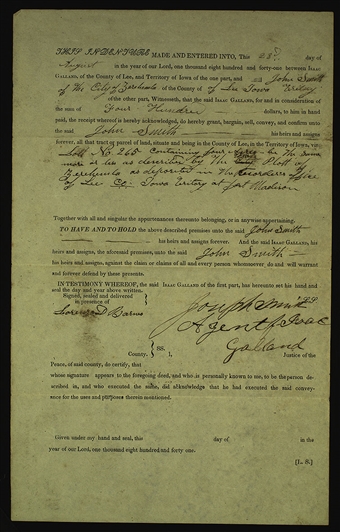 THIS INDENTURE MADE AND ENTERED INTO, This 28th day of
August in the year of our Lord, one thousand eight hundred and forty-one between ISAAC
GALLAND, of the County of Lee, and Territory of Iowa of the one part, and John Smith
of the City of Zerehemla of the County of Lee Iowa Teritory
of the other part, Witnesseth, that the said ISAAC GALLAND, for and in consideration of
the sum of Four Hundred dollars, to him in hand
paid, the receipt whereof is hereby acknowledged, do hereby grant, bargain, sell, convey, and confirm unto
the said John Smith his heirs and assigns
forever, all that tract or parcel of land, situate and being in the County of Lee, in the Territory of Iowa, viz:
Lott No 265 Containing four acres be the same
more or less as described by the Plott of
Zerehemla as deposited in the Recorders office
of Lee Co: Iowa Teritory at fort Madison
Together with all and singular the appurtenances thereunto belonging, or in anywise appertaining.
TO HAVE AND TO HOLD the above described premises unto the said John Smith
his heirs and assigns forever. And the said ISAAC GALLAND,
his heirs and assigns, the aforesaid premises, unto the said John Smith
his heirs and assigns, against the claim or claims of all and every person whomsoever, do and will warrant
and forever defend by these presents.
IN TESTIMONY WHEREOF, the said ISAAC GALLAND of the first part, has hereunto set his hand and
seal the day and year above written.
Signed, sealed and delivered
in presence of
Lorenzo D. Barns
Joseph Smith
Agent for Isaac
Galland
County. } ss.
I, Justice of the
Peace, of said county, do certify, that
whose signature appears to the foregoing deed, and who is personally known to me, to be the person described
in, and who executed the same, did acknowledge that he had executed the said conveyance
for the uses and purposes therein mentioned.
Given under my hand and seal, this day of in the
year of our Lord, one thousand eight hundred and forty one.
[L. S.]